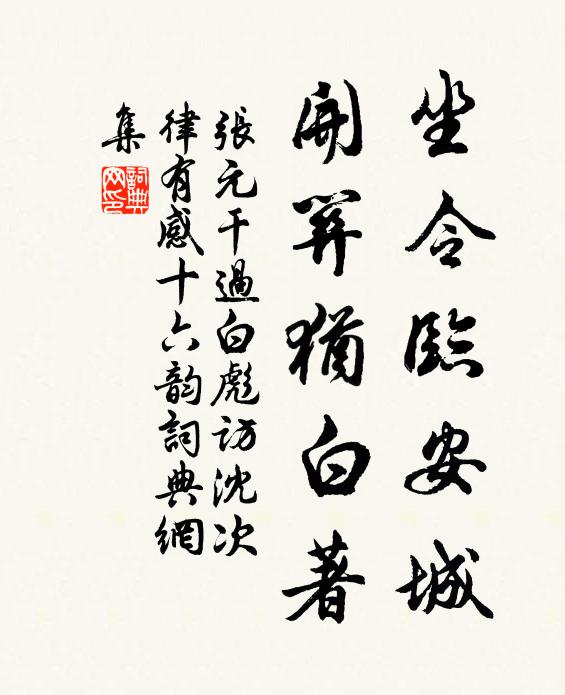 坐令臨安城
開笄猶白著
張元干過白彪訪沈次
律有感十六韵詞典網
集
詞典
网印